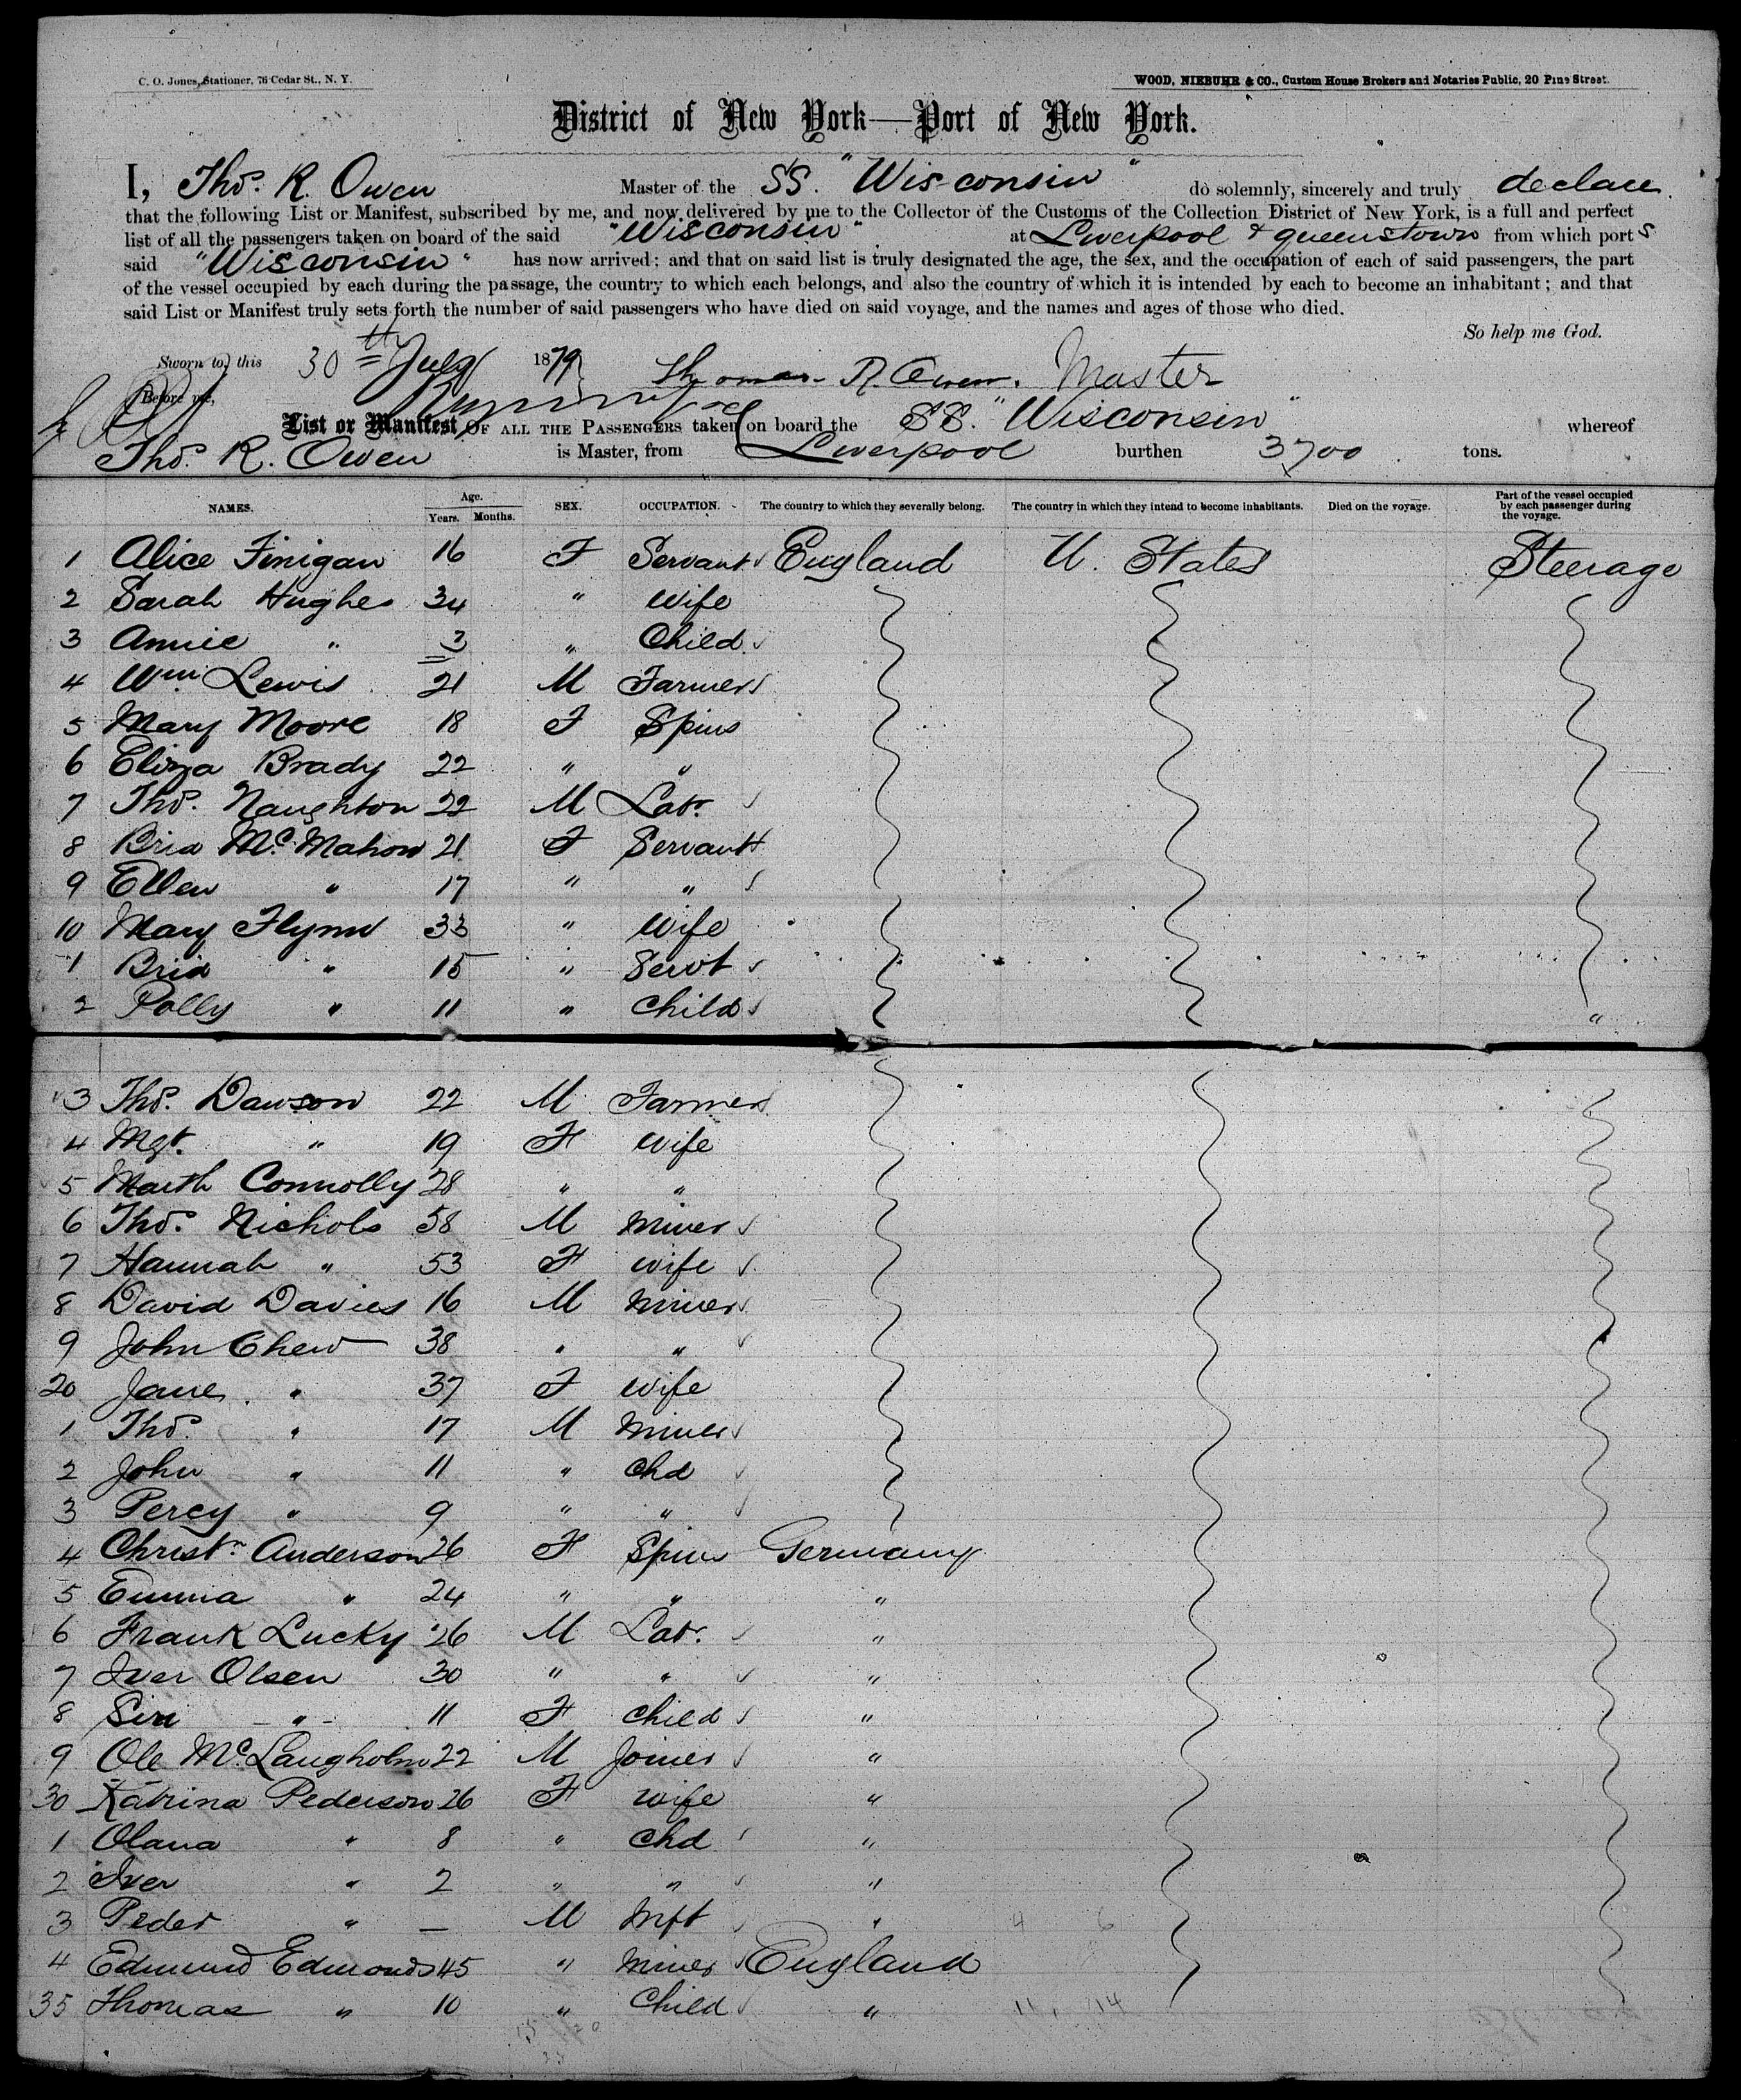 C. O. Jones, Stationer, 76 Cedar St., N. Y.
WOOD, NIEBUHR & CO., Custom House Brokers and Notaries Public, 20 Pine Street.
District of New York—Port of New York.
I, Thos. R. Owen Master of the SS. "Wisconsin" do solemnly, sincerely and truly declare
that the following List or Manifest, subscribed by me, and now delivered by me to the Collector of the Customs of the Collection District of New York, is a full and perfect
list of all the passengers taken on board of the said "Wisconsin" at Liverpool & Queenstown from which ports
said "Wisconsin" has now arrived; and that on said list is truly designated the age, the sex, and the occupation of each of said passengers, the part
of the vessel occupied by each during the passage, the country to which each belongs, and also the country of which it is intended by each to become an inhabitant; and that
said List or Manifest truly sets forth the number of said passengers who have died on said voyage, and the names and ages of those who died.
So help me God.
Sworn to this 30th July 1879 Thomas R. Owen. Master
Before me,
List or Manifest OF ALL THE PASSENGERS taken on board the SS. "Wisconsin" whereof
Thos. R. Owen is Master, from Liverpool burthen 3700 tons.
NAMES. Age. Years. Months. SEX. OCCUPATION. The country to which they severally belong. The country in which they intend to become inhabitants. Died on the voyage. Part of the vessel occupied by each passenger during the voyage.
1 Alice Finigan 16 F Servant England U. States Steerage
2 Sarah Hughes 34 " Wife
3 Annie " 3 " Child
4 Wm. Lewis 21 M Farmer
5 Mary Moore 18 F Spins
6 Eliza Brady 22 " "
7 Thos. Naughton 22 M Labr.
8 Brid McMahon 21 F Servant
9 Ellen " 17 " "
10 Mary Flynn 33 " Wife
1 Brid " 15 " Servt
2 Polly " 11 " Child "
3 Thos. Dawson 22 M Farmer
4 Mgt. " 19 F Wife
5 Marth Connolly 28 " "
6 Thos. Nichols 58 M Miner
7 Hannah " 53 F Wife
8 David Davies 16 M Miner
9 John Chew 38 " "
20 Jane " 37 F Wife
1 Thos. " 17 M Miner
2 John " 11 " Chd
3 Percy " 9 " "
4 Christn. Anderson 26 F Spins Germany
5 Emma " 24 " " "
6 Frank Lucky 26 M Labr. "
7 Iver Olsen 30 " " "
8 Siri " 11 F Child "
9 Ole McLaugholm 22 M Joiner "
30 Katrina Pederson 26 F Wife "
1 Olana " 8 " Chd "
2 Iver " 2 " " "
3 Peder " — M Inft "
4 Edmund Edmonds 45 " Miner England
35 Thomas " 10 " Child "